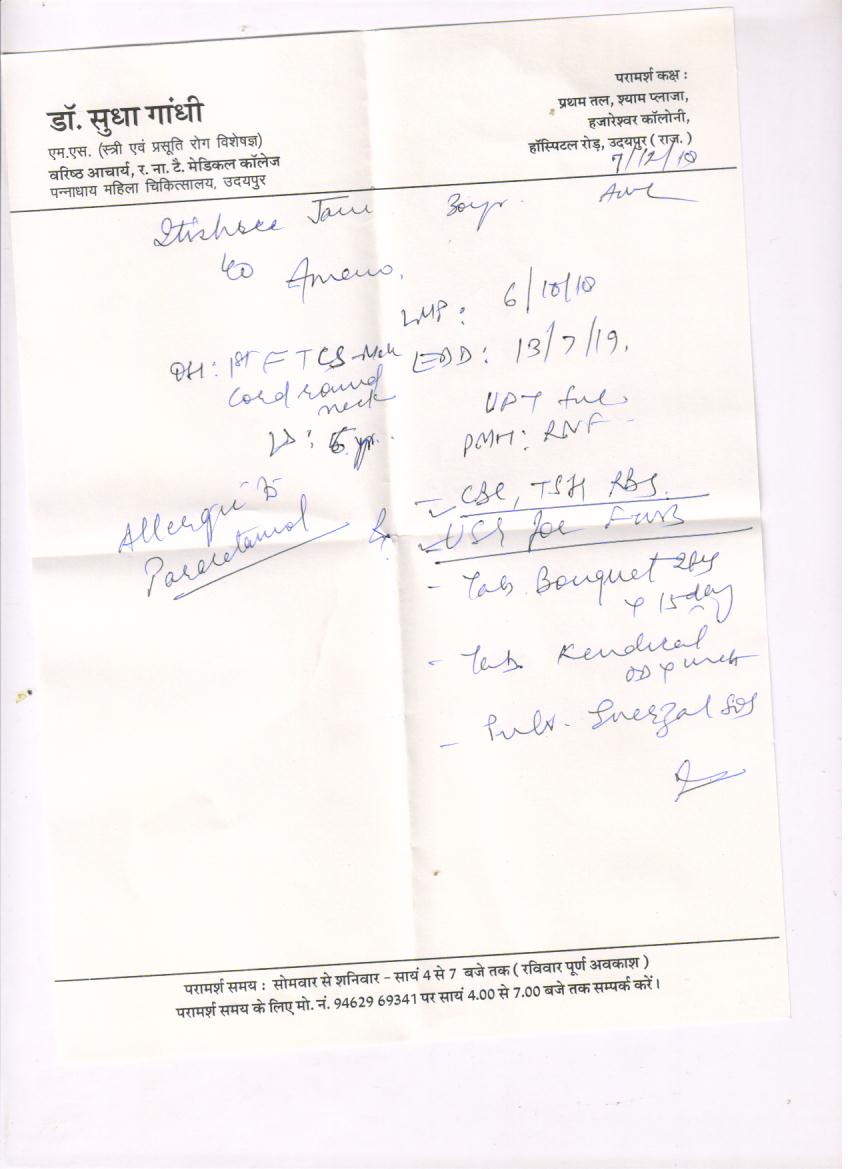 डॉ. सुधा गांधी
एम.एस. (स्त्री एवं प्रसूति रोग विशेषज्ञ)
वरिष्ठ आचार्य, र. ना. टै. मेडिकल कॉलेज
पन्नाधाय महिला चिकित्सालय, उदयपुर
परामर्श कक्ष :
प्रथम तल, श्याम प्लाजा,
हजारेश्वर कॉलोनी,
हॉस्पिटल रोड़, उदयपुर ( राज. )
7/12/18
30yr.
LMP : 6/10/18
OH : 1st FTCS
EDD : 13/7/19.
Cord round
neck
UPT
PMH : RNF
Allergic to
Paracetamol
- CBC, TSH RBS.
- USG for FWB
- Tab. Bouquet
x 15 day
- Tab.
OD x
-
SOS
परामर्श समय : सोमवार से शनिवार - सायं 4 से 7 बजे तक ( रविवार पूर्ण अवकाश )
परामर्श समय के लिए मो. नं. 94629 69341 पर सायं 4.00 से 7.00 बजे तक सम्पर्क करें।